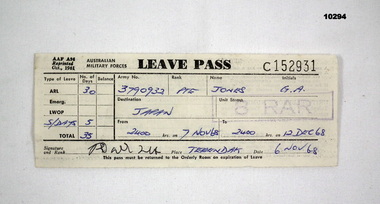 10294
AAP A86
Reprinted
Oct., 1961
AUSTRALIAN
MILITARY FORCES
LEAVE PASS
C152931
Type of Leave No. of Days Balance Army No. Rank Name Initials
ARL 30 3790932 PTE JONES G.A.
Emerg. Destination Unit Stamp
LWOP JAPAN 8 RAR
S/DAYS 5 From To
TOTAL 35 2400 hrs. on 7 NOV 68 2400 hrs. on 12 DEC 68
Signature
and Rank Place TERENDAK Date 6 NOV 68
This pass must be returned to the Orderly Room on expiration of Leave